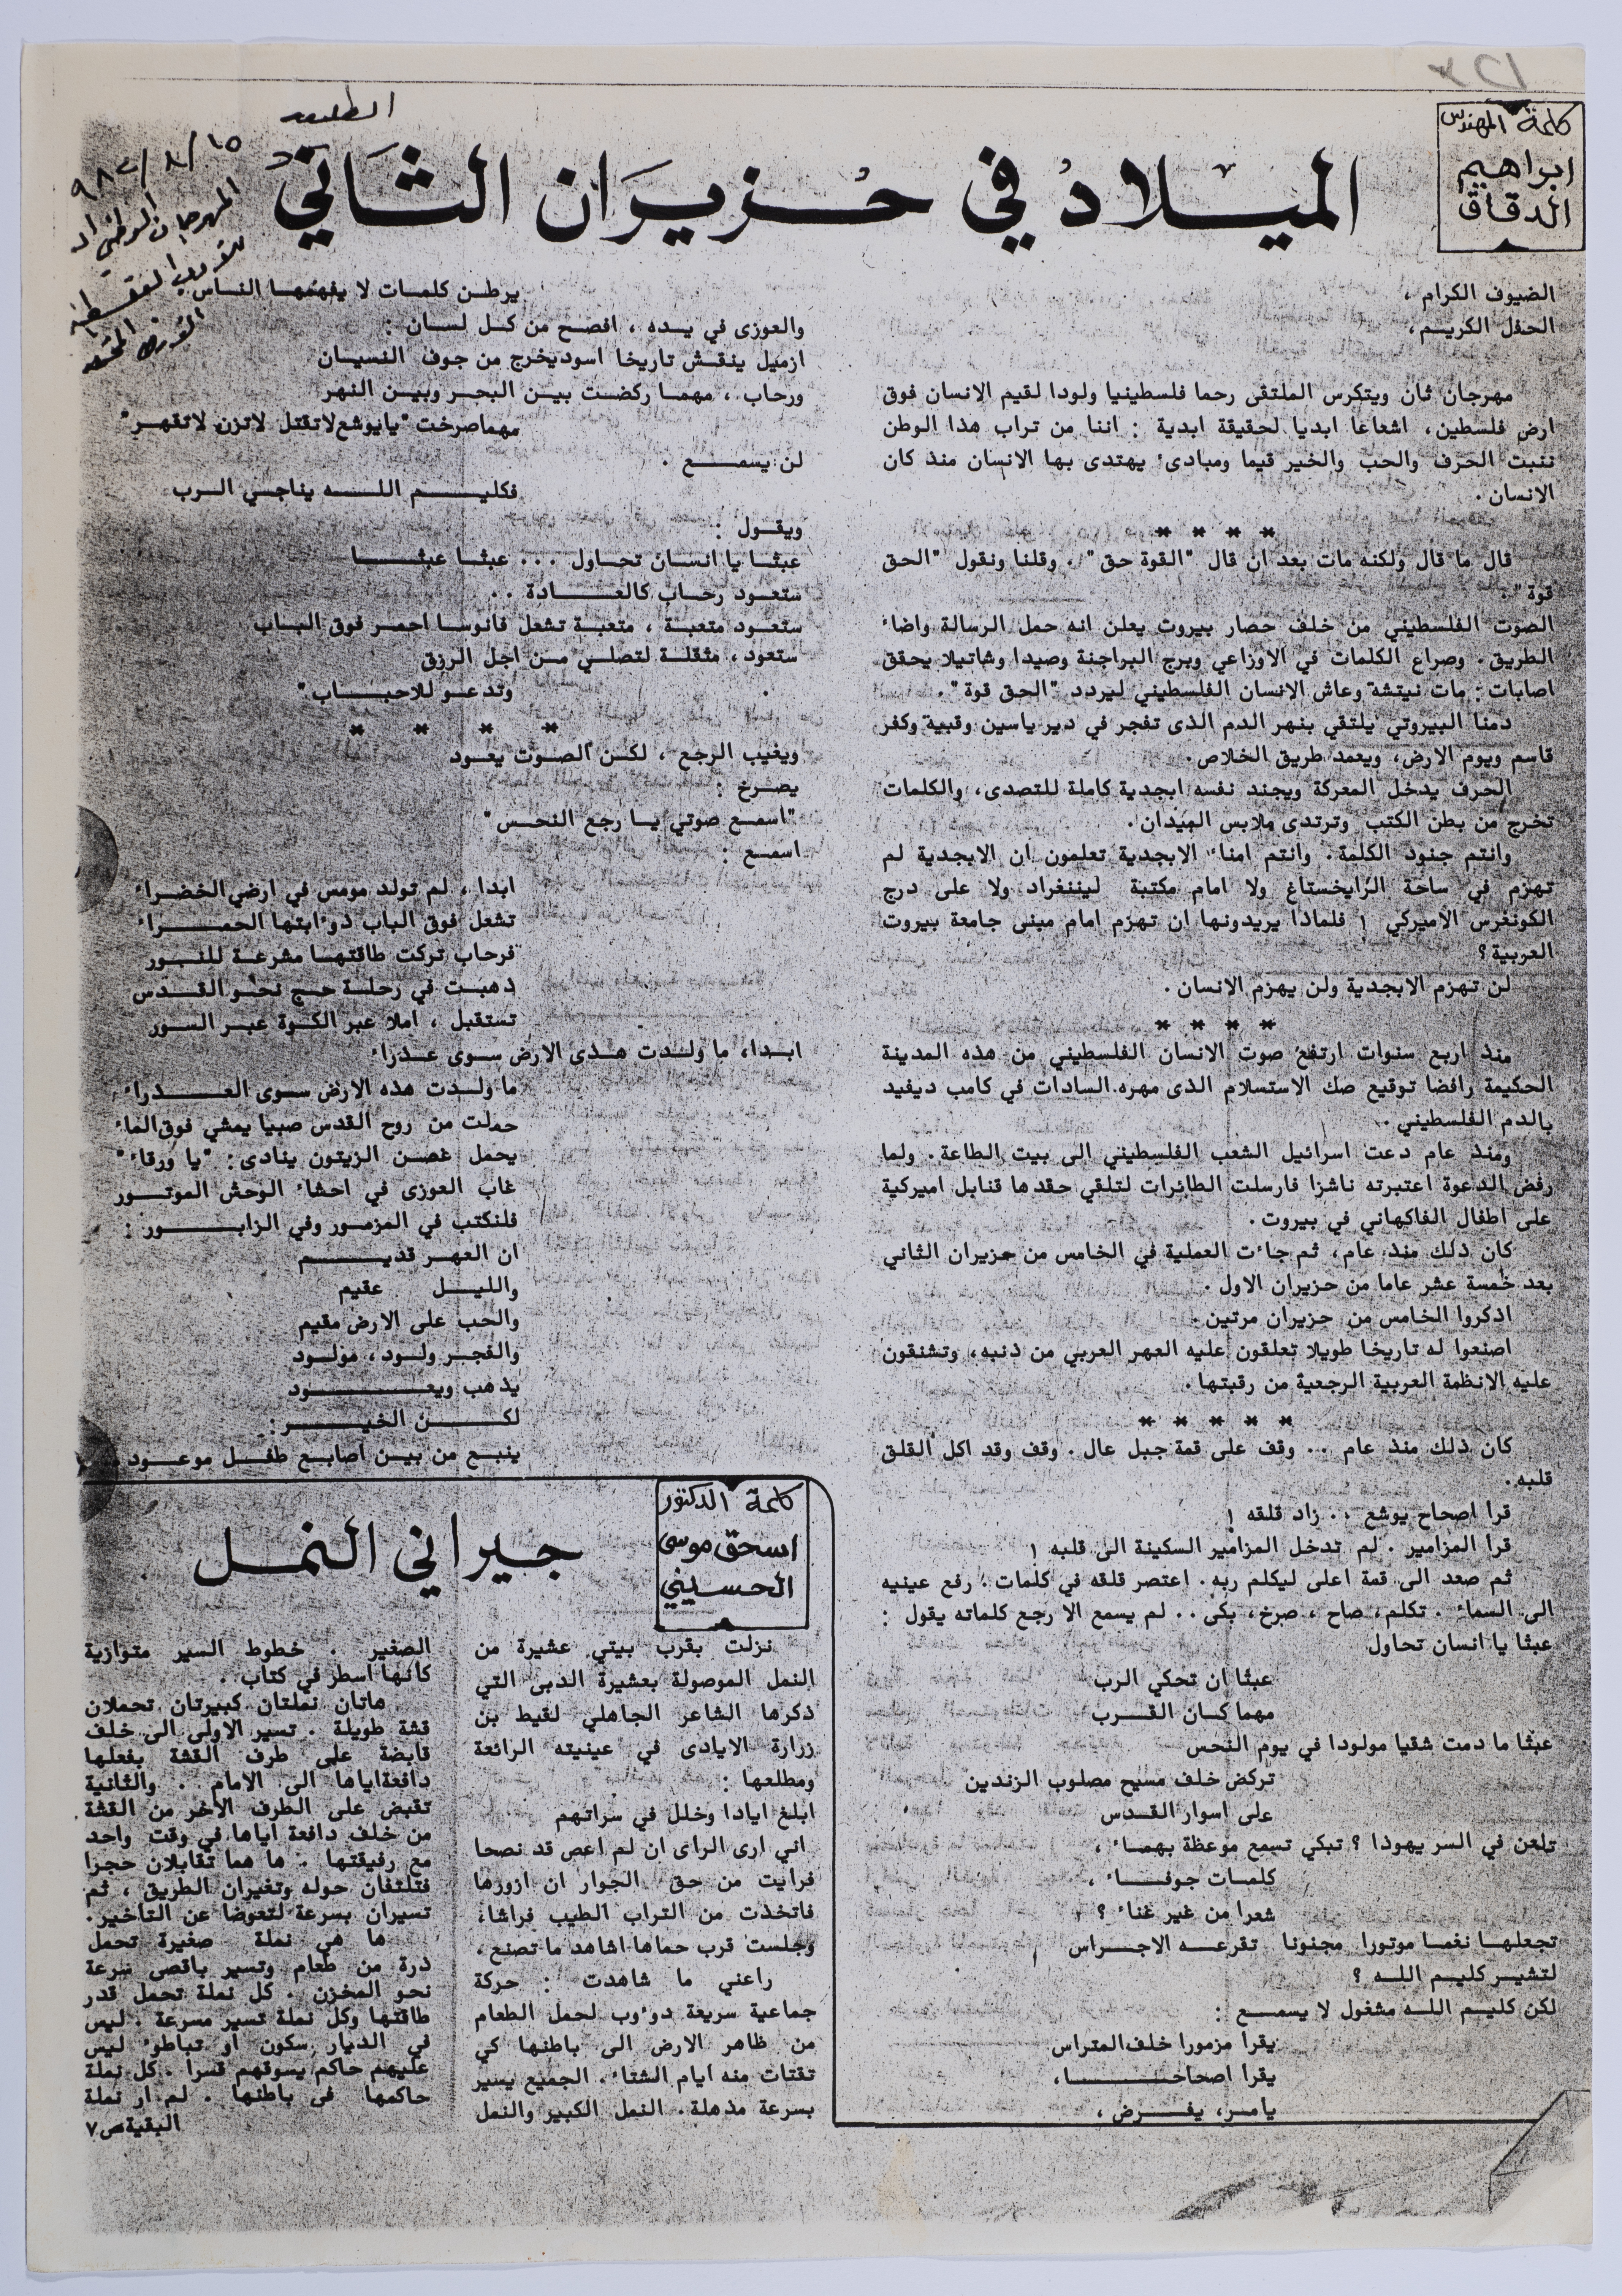 كلمة المهندس
ابراهيم
الدقاق
الميلاد في حزيران الثاني
الطليعة
المهرجان الوطني
الضيوف الكرام ،
الحفل الكريم،
مهرجان ثان ويتكرس الملتقى رحما فلسطينيا ولودا لقيم الانسان فوق
ارض فلسطين، اشعاعا ابديا لحقيقة ابدية : اننا من تراب هذا الوطن
ننبت الحرف والحب والخير قيما ومبادئ يهتدى بها الانسان منذ كان
الانسان .
* * * *
قال ما قال ولكنه مات بعد ان قال "القوة حق" . وقلنا ونقول "الحق
قوة" .
الصوت الفلسطيني من خلف حصار بيروت يعلن انه حمل الرسالة واضاء
الطريق. وصراع الكلمات في الاوزاعي وبرج البراجنة وصيدا وشاتيلا يحقق
اصابات: مات نيتشة وعاش الانسان الفلسطيني ليردد "الحق قوة".
دمنا البيروتي يلتقي بنهر الدم الذى تفجر في دير ياسين وقبية وكفر
قاسم ويوم الارض، ويعمد طريق الخلاص.
الحرف يدخل المعركة ويجند نفسه ابجدية كاملة للتصدى، والكلمات
تخرج من بطن الكتب وترتدى ملابس الميدان.
وانتم جنود الكلمة. وانتم امناء الابجدية تعلمون ان الابجدية لم
تهزم في ساحة الرايخستاغ ولا امام مكتبة ليننغراد ولا على درج
الكونغرس الاميركي ! فلماذا يريدونها ان تهزم امام مبنى جامعة بيروت
العربية؟
لن تهزم الابجدية ولن يهزم الانسان .
* * * *
منذ اربع سنوات ارتفع صوت الانسان الفلسطيني من هذه المدينة
الحكيمة رافضا توقيع صك الاستسلام الذى مهره السادات في كامب ديفيد
بالدم الفلسطيني .
ومنذ عام دعت اسرائيل الشعب الفلسطيني الى بيت الطاعة. ولما
رفض الدعوة اعتبرته ناشزا فارسلت الطائرات لتلقي حقدها قنابل اميركية
على اطفال الفاكهاني في بيروت.
كان ذلك منذ عام، ثم جاءت العملية في الخامس من حزيران الثاني
بعد خمسة عشر عاما من حزيران الاول .
اذكروا الخامس من حزيران مرتين.
اصنعوا له تاريخا طويلا تعلقون عليه العهر العربي من ذنبه، وتشنقون
عليه الانظمة العربية الرجعية من رقبتها.
* * * * *
كان ذلك منذ عام .. وقف على قمة جبل عال . وقف وقد اكل القلق
قلبه.
قرا اصحاح يوشع .. زاد قلقه !
قرا المزامير . لم تدخل المزامير السكينة الى قلبه !
ثم صعد الى قمة اعلى ليكلم ربه. اعتصر قلقه في كلمات. رفع عينيه
الى السماء . تكلم، صاح ، صرخ، بكى.. لم يسمع الا رجع كلماته يقول :
عبثا يا انسان تحاول
عبثا ان تحكي الرب
مهما كان القرب
عبثا ما دمت شقيا مولودا في يوم النحس
تركض خلف مسيح مصلوب الزندين
على اسوار القدس
تلعن في السر يهوذا ؟ تبكي تسمع موعظة بهماء ،
كلمات جوفاء ،
شعرا من غير غناء ؟
تجعلها نغما موتورا مجنونا تقرعه الاجراس
لتشير كليم الله ؟
لكن كليم الله مشغول لا يسمع :
يقرا مزمورا خلف المتراس
يقرا اصحاحا،
يامر، يفرض ،
يرطن كلمات لا يفهمها الناس
والعوزى في يده ، افصح من كل لسان :
ازميل ينقش تاريخا اسود يخرج من جوف النسيان
ورحاب ، مهما ركضت بين البحر وبين النهر
مهما صرخت "يا يوشع لا تقتل لا تزن لا تقهر"
لن يسمع .
فكليم الله يناجي الرب
ويقول :
عبثا يا انسان تحاول ... عبثا عبثا
ستعود رحاب كالعادة ..
ستعود متعبة ، متعبة تشعل فانوسا احمر فوق الباب
ستعود، مثقلة لتصلي من اجل الرزق
وتدعو للاحباب"
* * * *
ويغيب الرجع ، لكن الصوت يعود
يصرخ :
"اسمع صوتي يا رجع النحس"
اسمع :
ابدا ، لم تولد مومس في ارضي الخضراء
تشعل فوق الباب ذوءابتها الحمراء
فرحاب تركت طاقتها مشرعة للنور
ذهبت في رحلة حج نحو القدس
تستقبل ، املا عبر الكوة عبر السور
ابدا، ما ولدت هذى الارض سوى عذراء
ما ولدت هذه الارض سوى العذراء
حملت من روح القدس صبيا يمشي فوق الماء
يحمل غصن الزيتون ينادى: "يا ورقاء"
غاب العوزى في احشاء الوحش الموتور
فلنكتب في المزمور وفي الزابور :
ان العهر قديم
والليل عقيم
والحب على الارض مقيم
والفجر ولود، مولود
يذهب ويعود
لكن الخير :
ينبع من بين اصابع طفل موعود
كلمة الدكتور
اسحق موسى
الحسيني
جيراني النمل
نزلت بقرب بيتي عشيرة من
النمل الموصولة بعشيرة الدبى التي
ذكرها الشاعر الجاهلي لقيط بن
زرارة الايادى في عينيته الرائعة
ومطلعها :
ابلغ ايادا وخلل في سراتهم
اني ارى الراى ان لم اعص قد نصحا
فرايت من حق الجوار ان ازورها
فاتخذت من التراب الطيب فراشا،
وجلست قرب حماها اشاهد ما تصنع.
راعني ما شاهدت : حركة
جماعية سريعة دوءوب لحمل الطعام
من ظاهر الارض الى باطنها كي
تقتات منه ايام الشتاء. الجميع يسير
بسرعة مذهلة. النمل الكبير والنمل
الصغير . خطوط السير متوازية
كانها اسطر في كتاب .
هاتان نملتان كبيرتان تحملان
قشة طويلة . تسير الاولى الى خلف
قابضة على طرف القشة بفعلها
دافعة اياها الى الامام . والثانية
تقبض على الطرف الآخر من القشة
من خلف دافعة اياها في وقت واحد
مع رفيقتها . ها هما تقابلان حجرا
فتلتفان حوله وتغيران الطريق ، ثم
تسيران بسرعة لتعوضا عن التاخير.
ها هي نملة صغيرة تحمل
ذرة من طعام وتسير باقصى سرعة
نحو المخزن . كل نملة تحمل قدر
طاقتها وكل نملة تسير مسرعة . ليس
في الديار سكون او تباطوء ليس
عليهم حاكم يسوقهم قسرا . كل نملة
حاكمها في باطنها . لم ار نملة
البقية ص ٧